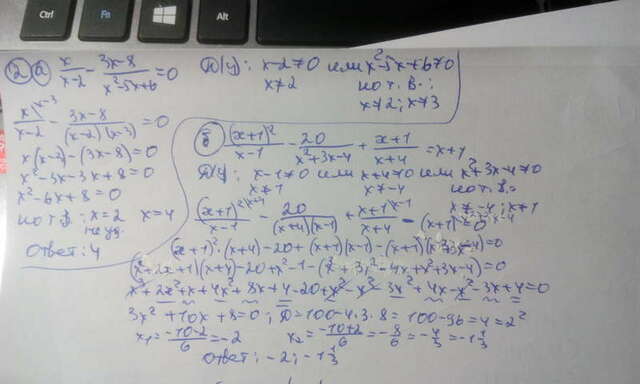 Ctrl
Fn
Alt
2 а) x/(x-2) - (3x-8)/(x²-5x+6) = 0
Д/У: x-2≠0 или x²-5x+6≠0
x≠2 по т. В.:
x≠2; x≠3
x\x-3/(x-2) - (3x-8)/((x-2)(x-3)) = 0
x(x-2)-(3x-8)=0
x²-3x-3x+8=0
x²-6x+8=0
по т. В: x=2 x=4
не уд.
Ответ: 4
б) (x+1)²/(x-1) - 20/(x²+3x-4) + (x+1)/(x+4) = x+1
Д/У: x-1≠0 или x+4≠0 или x²+3x-4≠0
x≠1 x≠-4 по т. В:
x≠-4; x≠1
(x+1)²\x+4/(x-1) - 20/((x+4)(x-1)) + (x+1)\x-1/(x+4) - (x+1)=0
(x+1)²·(x+4)-20+(x+1)(x-1)-(x+1)(x²+3x-4)=0
(x²+2x+1)(x+4)-20+x²-1-(x³+3x²-4x+x²+3x-4)=0
3x²+10x+8=0; D=100-4·3·8=100-96=4=2²
x₁=(-10-2)/6=-2 x₂=(-10+2)/6=-8/6=-4/3=-1 1/3
Ответ: -2; -1 1/3